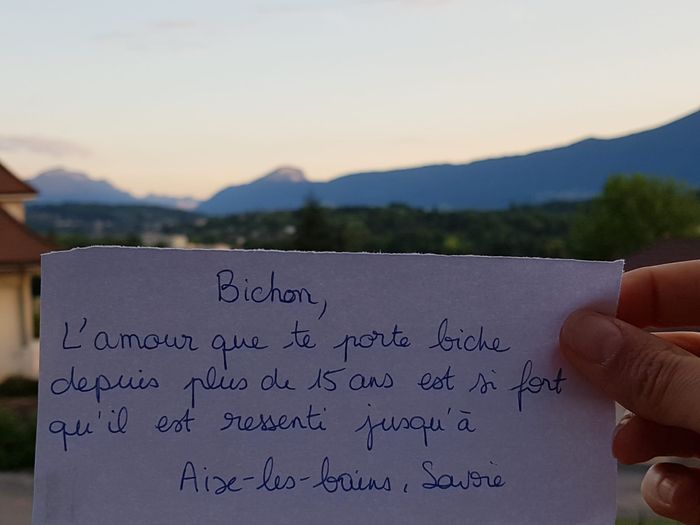 Bichon,
L'amour que te porte biche
depuis plus de 15 ans est si fort
qu'il est ressenti jusqu'à
Aix-les-bains, Savoie